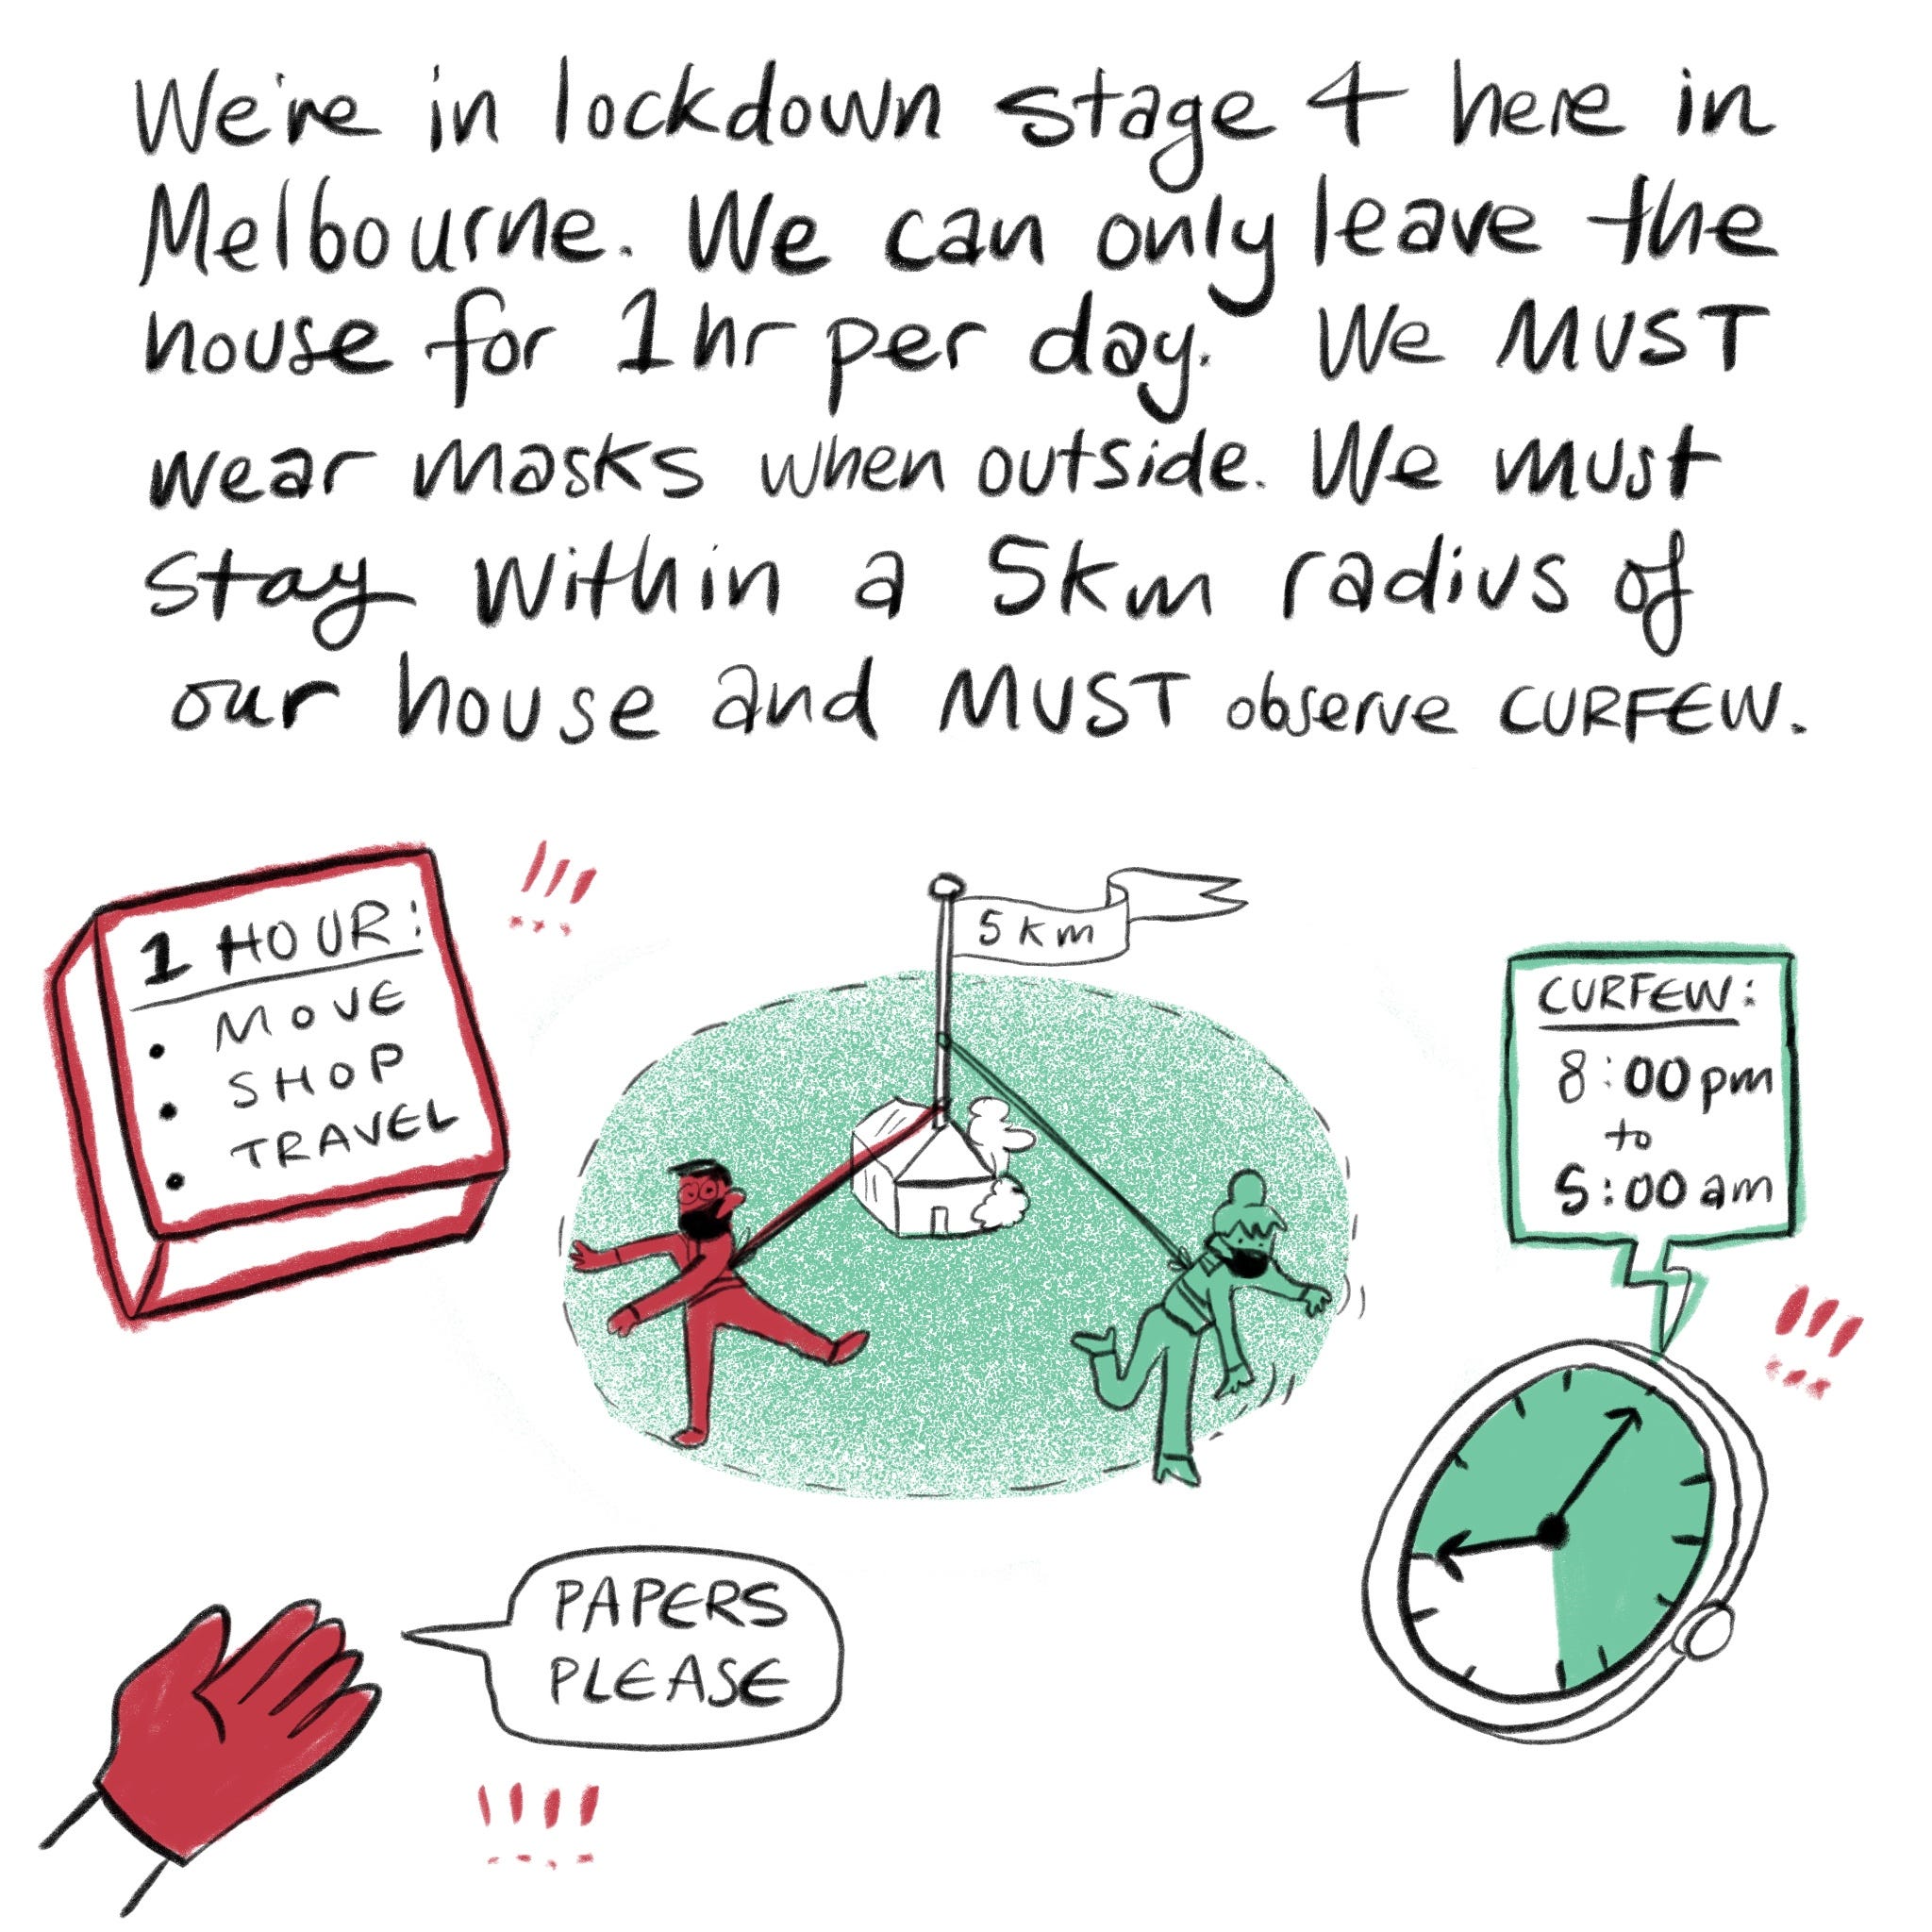 We're in lockdown stage 4 here in
Melbourne. We can only leave the
house for 1hr per day. We MUST
wear masks when outside. We must
stay within a 5km radius of
our house and MUST observe CURFEW.
!!!
1 HOUR:
• MOVE
• SHOP
• TRAVEL
5km
CURFEW:
8:00pm
to
5:00am
!!!
PAPERS
PLEASE
!!!!